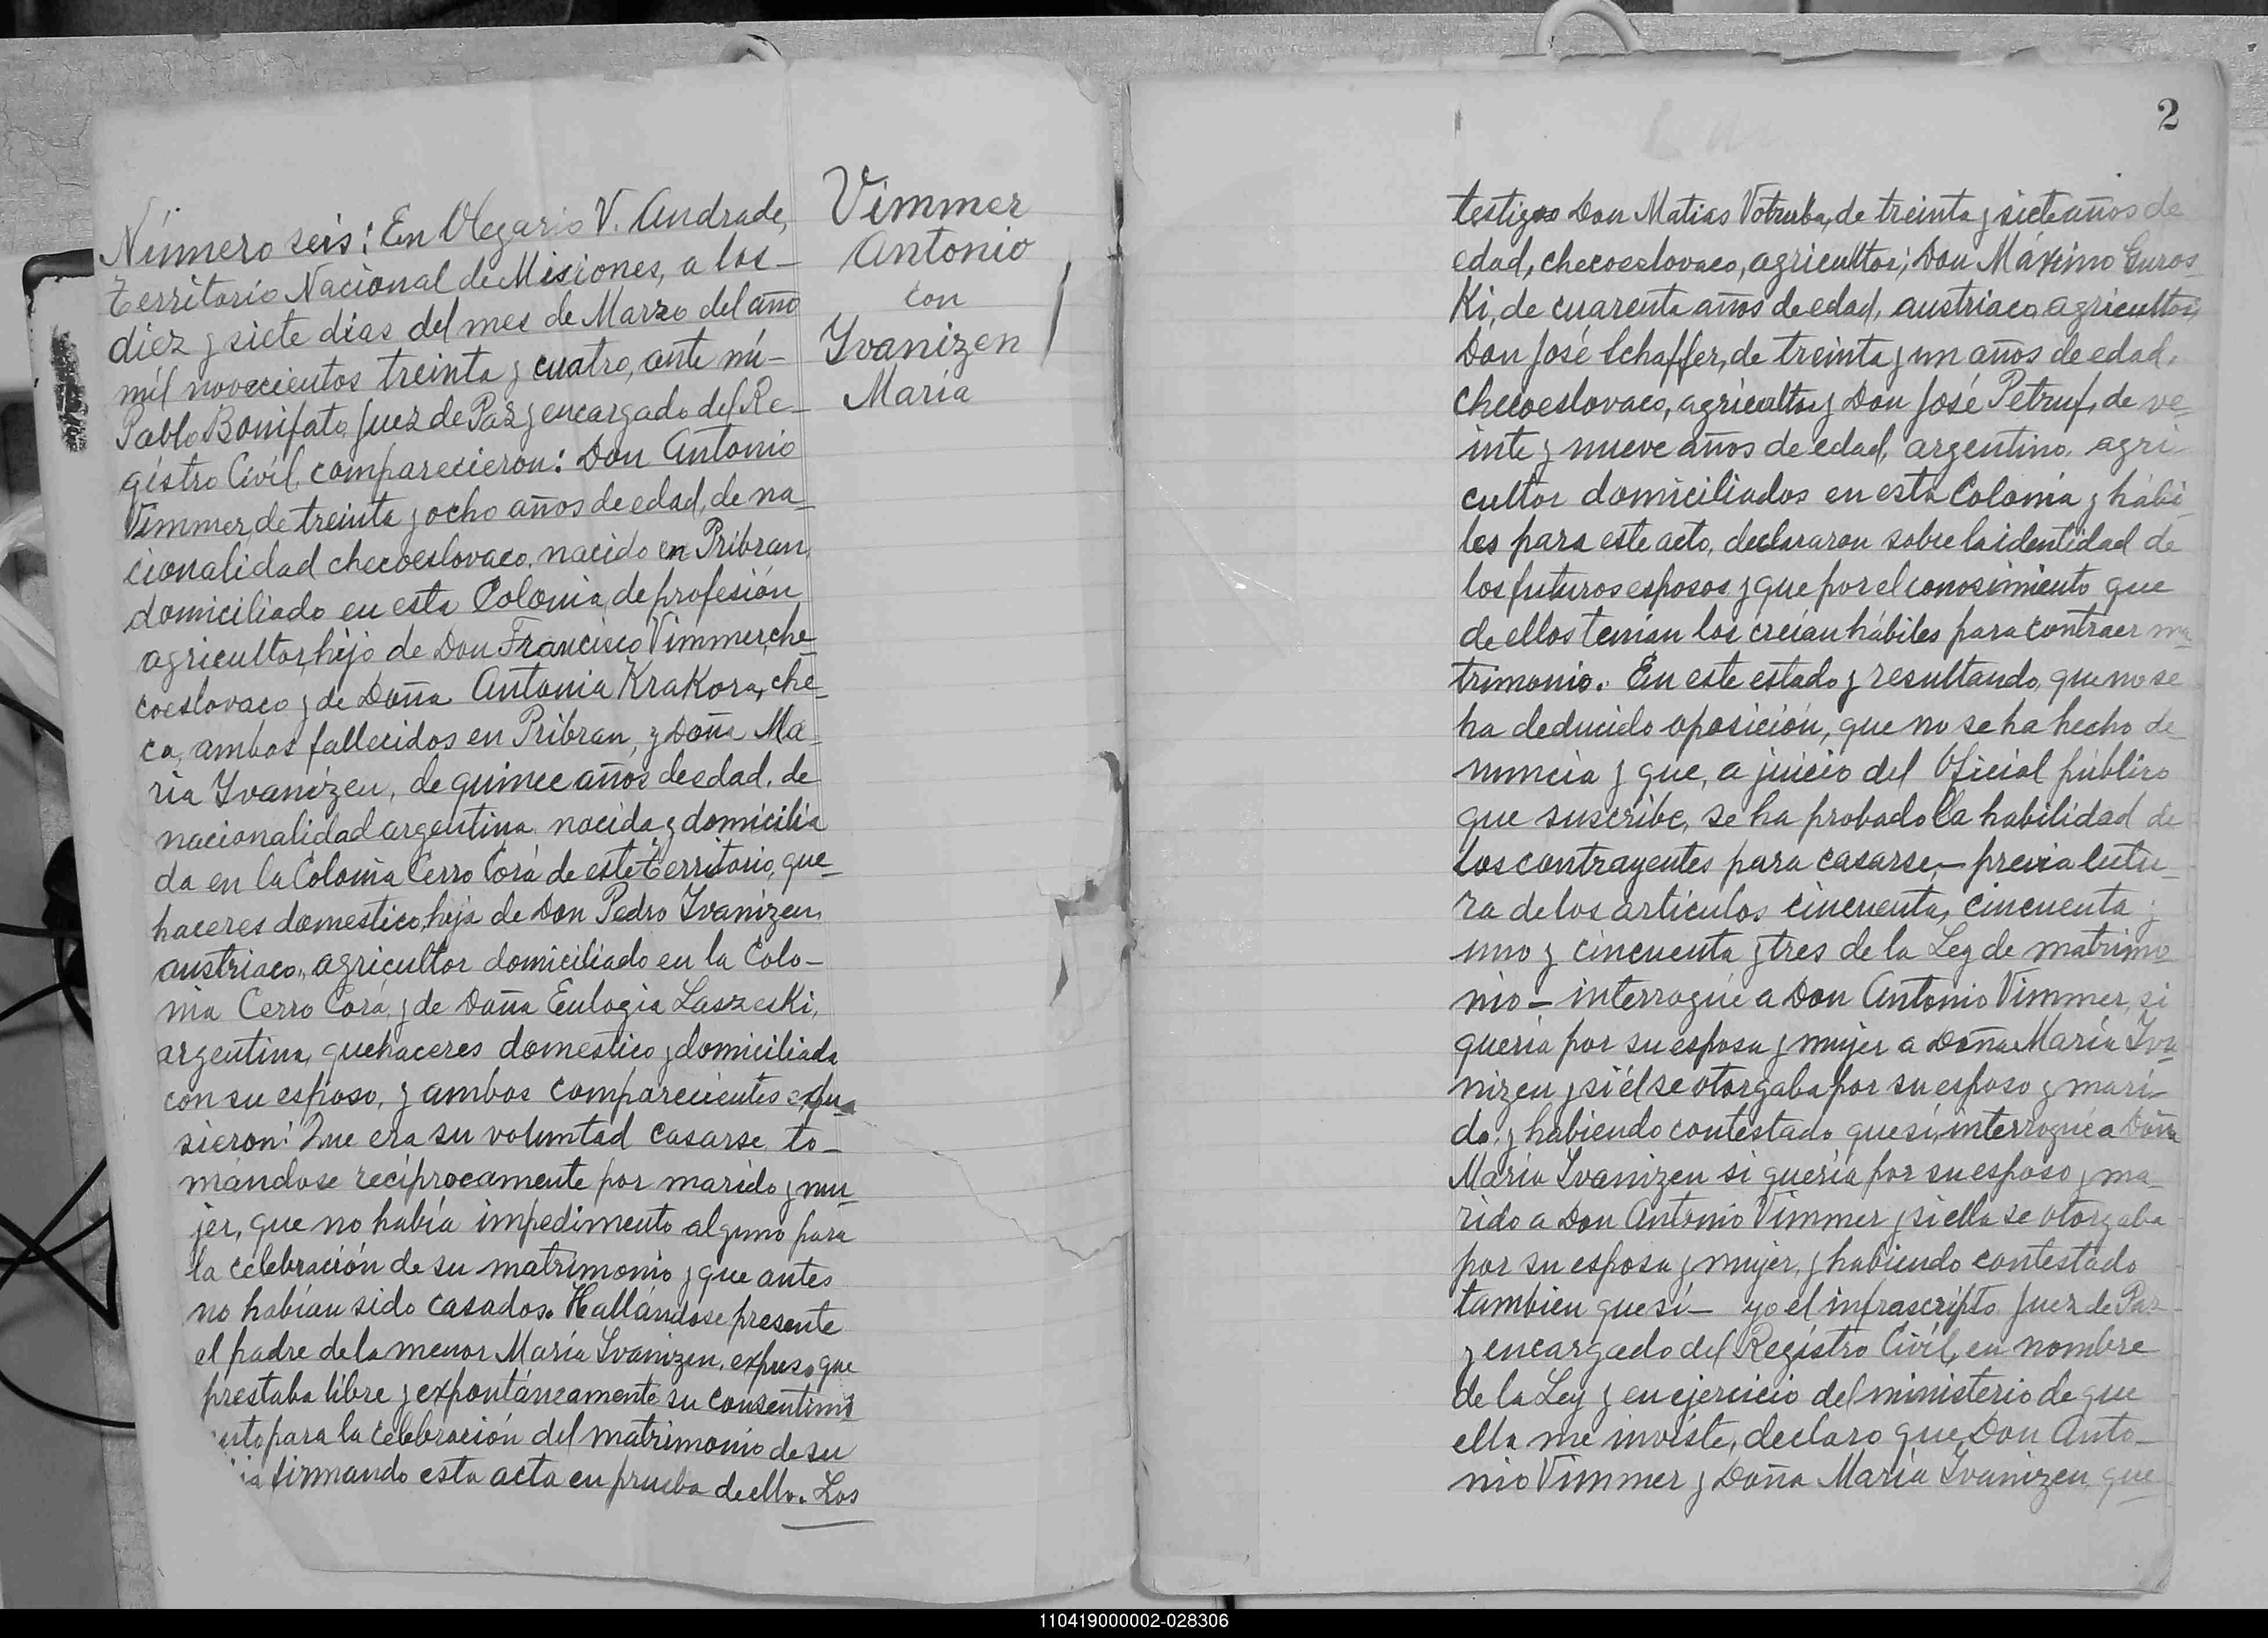 Número seis: En Olegario V. Andrade,
Territorio Nacional de Misiones, a los -
diez y siete dias del mes de Marzo del año
mil novecientos treinta y cuatro, ante mí -
Pablo Bonifato Juez de Paz y encargado del Re-
gistro Civil comparecieron: Don Antonio
Vimmer, de treinta y ocho años de edad, de na-
cionalidad checoeslovaco, nacido en Pribran,
domiciliado en esta Colonia, de profesión
agricultor, hijo de Don Francisco Vimmer, che-
coeslovaco y de Doña Antonia Krakora, che-
ca, ambos fallecidos en Pribran, y Doña Ma-
ria Yvanizen, de quince años de edad, de
nacionalidad argentina, nacida y domicilia
da en la Colonia Cerro Corá de este territorio, que-
haceres domestico, hija de Don Pedro Yvanizen,
austriaco, agricultor domiciliado en la Colo-
nia Cerro Corá, y de Doña Eulogia Laszeski,
argentina, quehaceres domestico y domiciliada
con su esposo, y ambos comparecientes expu-
sieron: Que era su voluntad casarse, to-
mándose recíprocamente por marido y mu-
jer, que no había impedimento alguno para
la celebración de su matrimonio y que antes
no habían sido casados. Hallándose presente
el padre de la menor María Yvanizen, expuso que
prestaba libre y expontáneamente su consentimi
ento para la celebración del matrimonio de su
firmando esta acta en prueba de ello. Los
Vimmer
Antonio
con
Yvanizen
María
2
testigos Don Matias Votruba, de treinta y siete años de
edad, checoeslovaco, agricultor; Don Máximo Guros-
ki, de cuarenta años de edad, austriaco, agricultor,
Don José Schaffer, de treinta y un años de edad,
checoeslovaco, agricultor y Don José Petruf, de ve-
inte y nueve años de edad, argentino, agri-
cultor domiciliados en esta Colonia y hábi-
les para este acto, declararon sobre la identidad de
los futuros esposos y que por el conosimiento que
de ellos tenían los creían hábiles para contraer ma-
trimonio. En este estado y resultando, que no se
ha deducido oposición, que no se ha hecho de-
nuncia y que, a juicio del Oficial público
que suscribe, se ha probado la habilidad de
los contrayentes para casarse, - previa lectu-
ra de los artículos cincuenta, cincuenta y
uno y cincuenta y tres de la Ley de matrimo-
nio - interrogué a Don Antonio Vimmer, si
quería por su esposa y mujer a Doña María Yva-
nizen y si él se otorgaba por su esposo y mari-
do, y habiendo contestado que sí, interrogué a Doña
María Yvanizen si quería por su esposo y ma-
rido a Don Antonio Vimmer y si ella se otorgaba
por su esposa y mujer, y habiendo contestado
tambien que sí - yo el infrascripto Juez de Paz
y encargado del Registro Civil, en nombre
de la Ley y en ejercicio del ministerio de que
ella me inviste, declaro que Don Anto-
nio Vimmer y Doña María Yvanizen, que
110419000002-028306